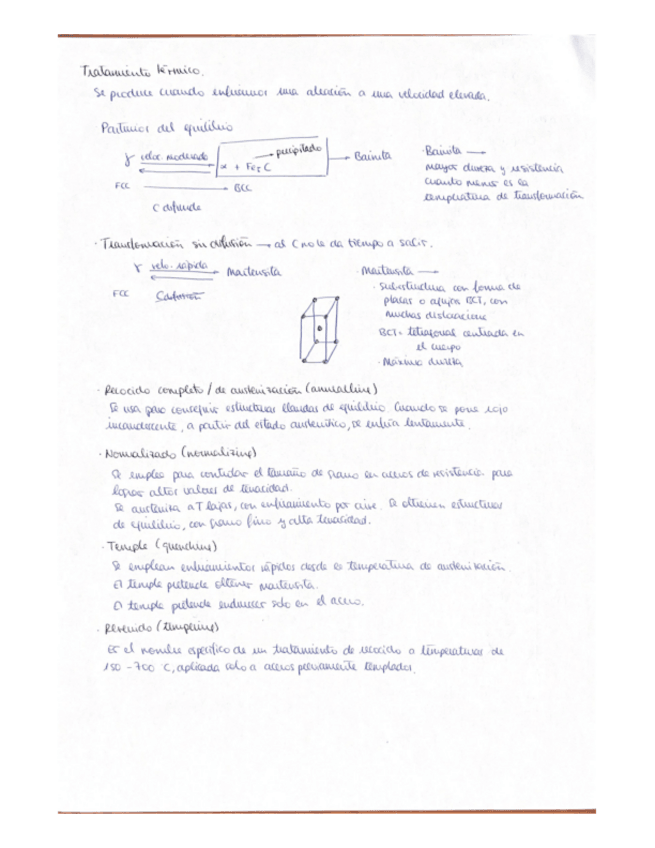 Tratamiento térmico.
Se produce cuando enfriamos una aleación a una velocidad elevada.
Partimos del equilibrio
γ veloc. moderado α + Fe3C → precipitado → Bainita
FCC → BCC
C difunde
· Bainita →
mayor dureza y resistencia
cuanto menor es la
temperatura de transformación
· Transformación sin difusión → al C no le da tiempo a salir.
γ velo. rápida Martensita
FCC
· Martensita →
· Subestructura con forma de
placas o agujas BCT, con
muchas dislocaciones
BCT = tetragonal centrada en
el cuerpo
· Máxima dureza
· Recocido completo / de austenización (annealing)
Se usa para conseguir estructuras llamadas de equilibrio. Cuando se pone rojo
incandescente, a partir del estado austenítico, se enfría lentamente.
· Normalizado (normalizing)
Se emplea para controlar el tamaño de grano en aceros de resistencia para
lograr altos valores de tenacidad.
Se austeniza a T bajas, con enfriamiento por aire. Se obtienen estructuras
de equilibrio, con grano fino y alta tenacidad.
· Temple (quenching)
Se emplean enfriamientos rápidos desde la temperatura de austenización.
El temple pretende obtener martensita.
El temple pretende endurecer solo en el acero.
· Revenido (tempering)
Es el nombre específico de un tratamiento de recocido a temperaturas de
150 - 700 C, aplicada solo a aceros previamente templados.